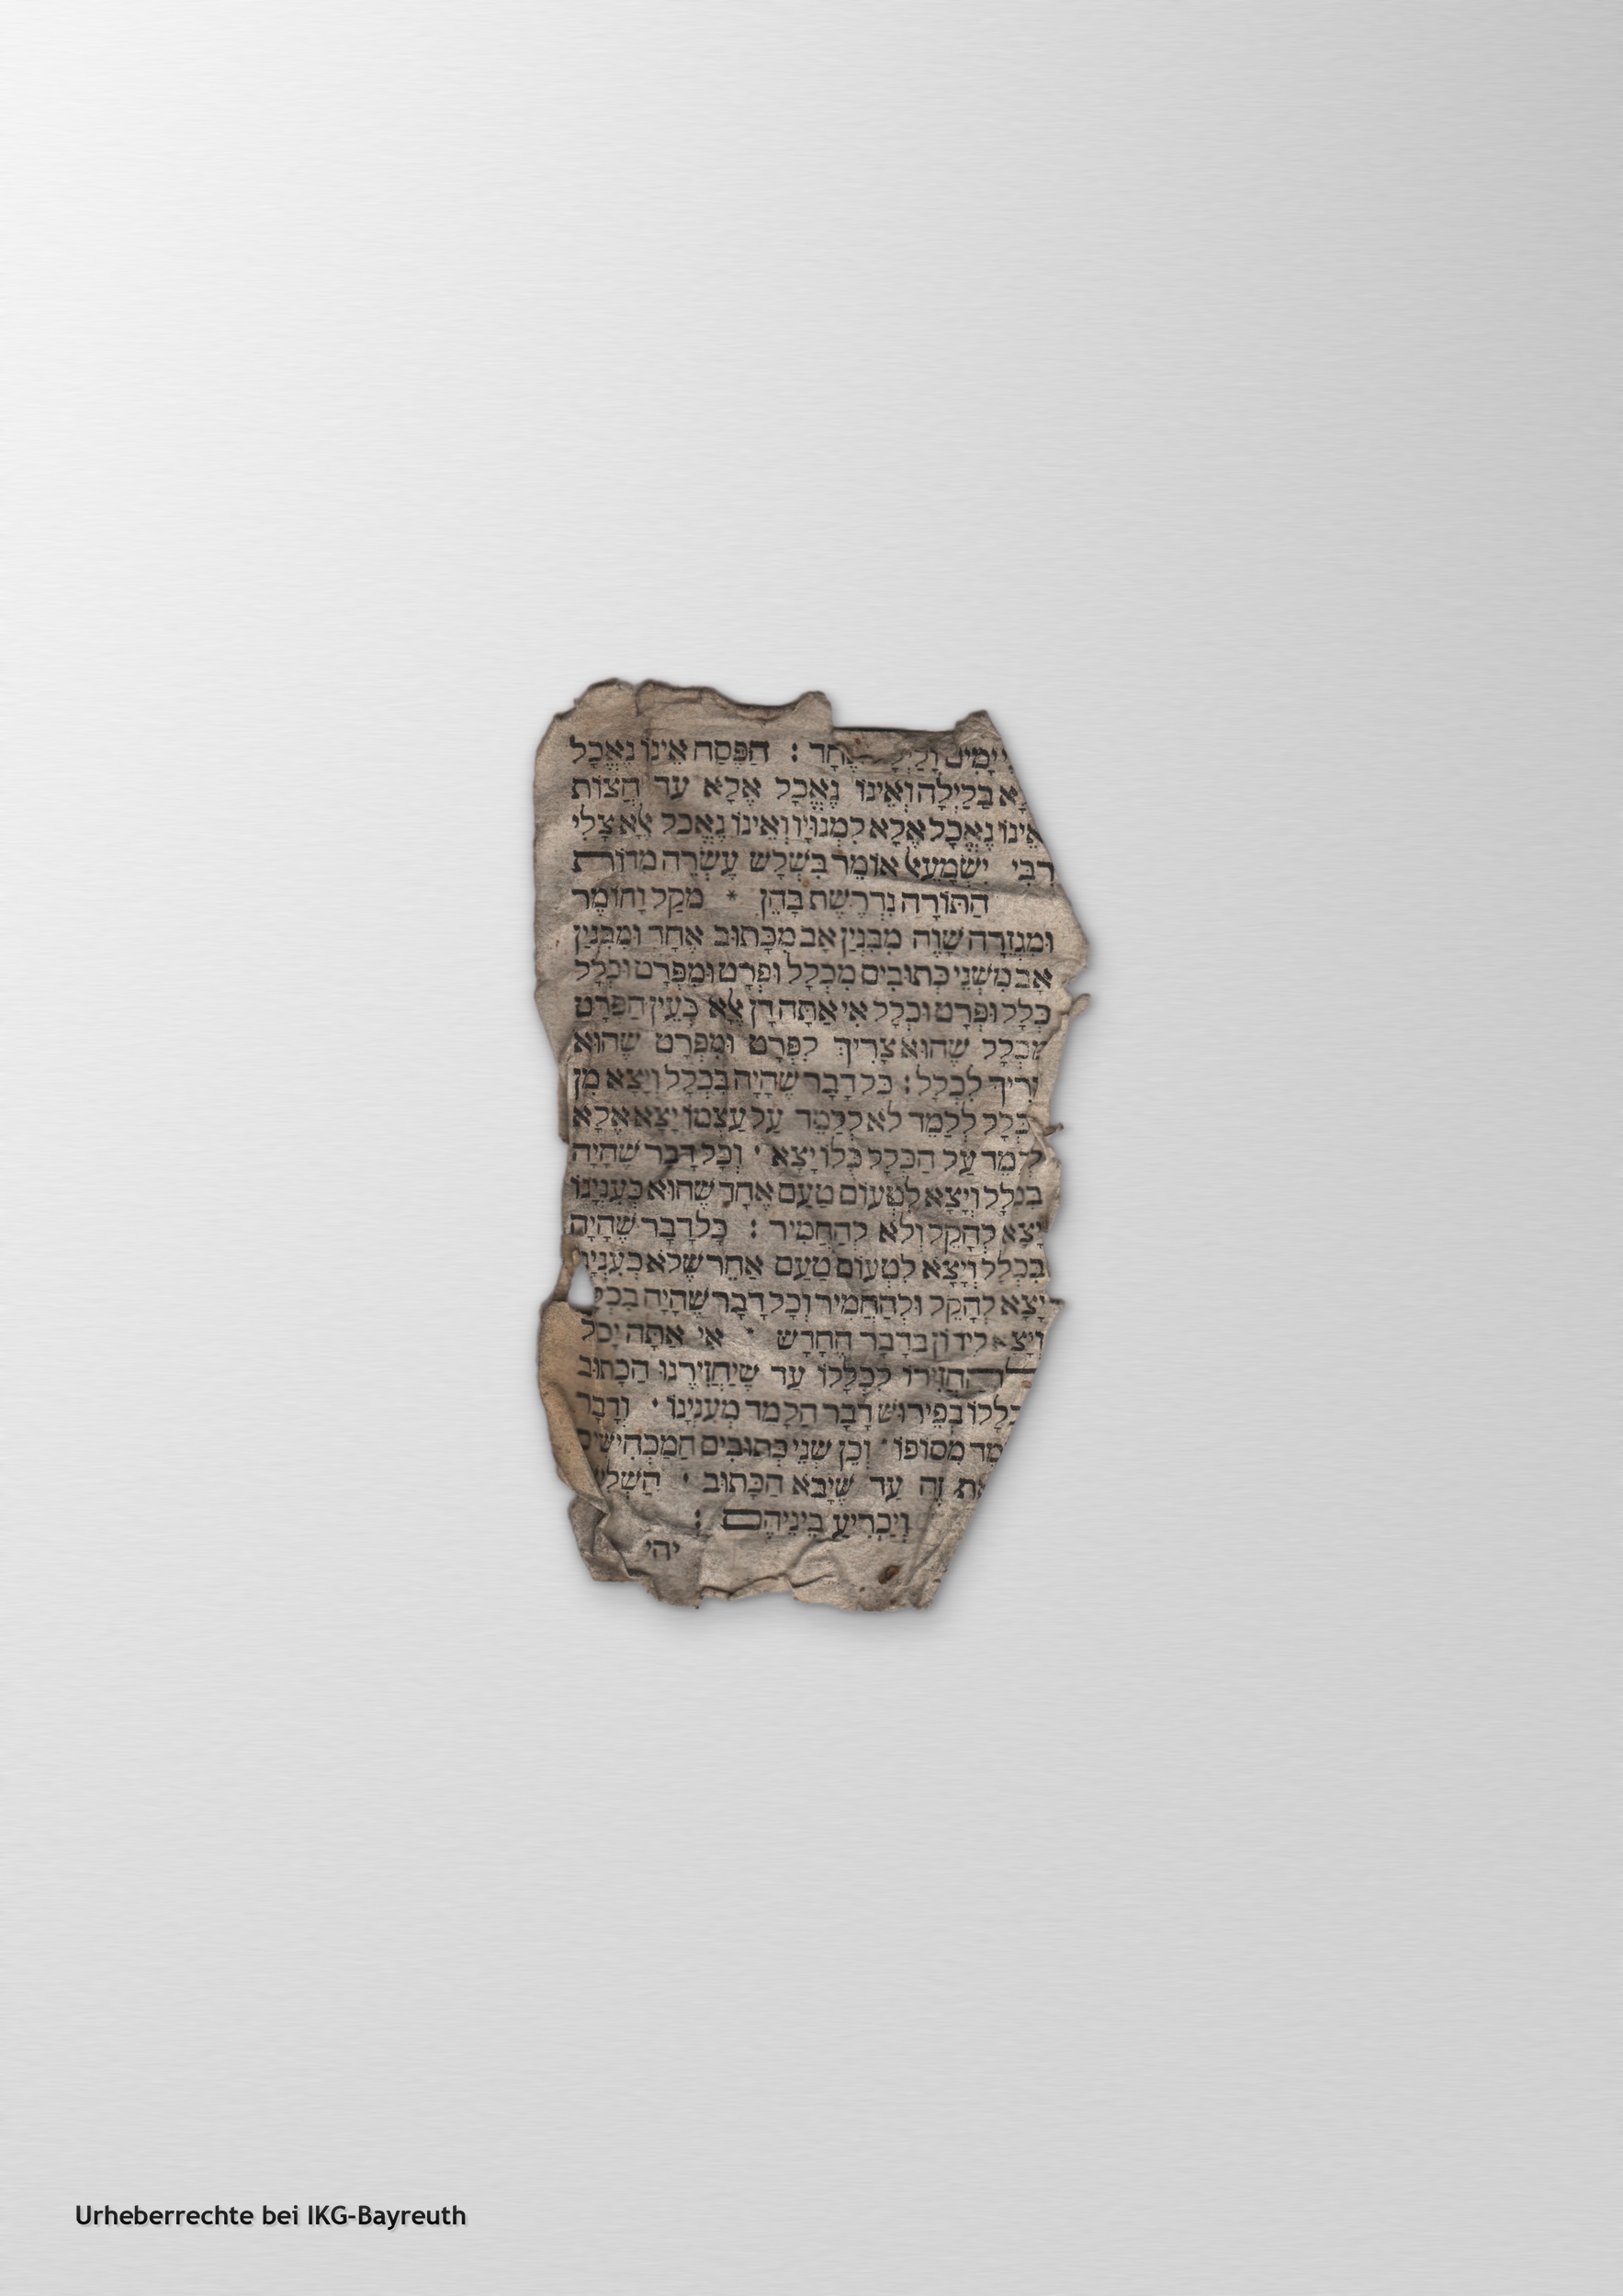 יָמִים וָלַיְלָה אֶחָד : הַפֶּסַח אֵינוֹ נֶאֱכָל
בַלַּיְלָה וְאֵינוֹ נֶאֱכָל אֶלָּא עַד חֲצוֹת
נֶאֱכָל אֶלָּא לִמְנוּיָיו וְאֵינוֹ נֶאֱכָל אֶלָּא צָלִי
רַבִּי יִשְׁמָעֵאל אוֹמֵר בִּשְׁלֹשׁ עֶשְׂרֵה מִדּוֹת
הַתּוֹרָה נִדְרֶשֶׁת בָּהֶן * מִקַּל וָחוֹמֶר
וּמִגְּזֵרָה שָׁוָה מִבִּנְיַן אָב מִכָּתוּב אֶחָד וּמִבִּנְיַן
אָב מִשְּׁנֵי כְתוּבִים מִכְּלָל וּפְרָט וּמִפְּרָט וּכְלָל
כְּלָל וּפְרָט וּכְלָל אִי אַתָּה דָן אֶלָּא כְּעֵין הַפְּרָט
מִכְּלָל שֶׁהוּא צָרִיךְ לִפְרָט וּמִפְּרָט שֶׁהוּא
צָרִיךְ לִכְלָל : כָּל דָּבָר שֶׁהָיָה בִּכְלָל וְיָצָא מִן
לְלַמֵּד לֹא לְלַמֵּד עַל עַצְמוֹ יָצָא אֶלָּא
לְלַמֵּד עַל הַכְּלָל כֻּלּוֹ יָצָא · וְכָל דָּבָר שֶׁהָיָה
בִּכְלָל וְיָצָא לִטְעוֹם טַעַם אֶחָד שֶׁהוּא כְּעִנְיָנוֹ
יָצָא לְהָקֵל וְלֹא לְהַחֲמִיר : כָּל דָּבָר שֶׁהָיָה
בִּכְלָל וְיָצָא לִטְעוֹם טַעַם אַחֵר שֶׁלֹּא כְּעִנְיָנוֹ
יָצָא לְהָקֵל וּלְהַחֲמִיר וְכָל דָּבָר שֶׁהָיָה בִּכְלָל
וְיָצָא לִידוֹן בְּדָבָר הֶחָדָשׁ · אִי אַתָּה יָכֹל
לְהַחֲזִירוֹ לִכְלָלוֹ עַד שֶׁיַּחֲזִירֶנּוּ הַכָּתוּב
לִכְלָלוֹ בְּפֵירוּשׁ דָּבָר הַלָּמֵד מֵעִנְיָנוֹ · וְדָבָר
הַלָּמֵד מִסּוֹפוֹ · וְכֵן שְׁנֵי כְּתוּבִים הַמַּכְחִישִׁים
זֶה עַד שֶׁיָּבֹא הַכָּתוּב · הַשְּׁלִישִׁי
וְיַכְרִיעַ בֵּינֵיהֶם :
יהי
Urheberrechte bei IKG-Bayreuth